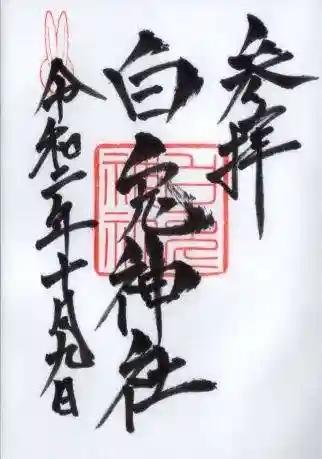 参拝
白兎神社
令和二年十月九日